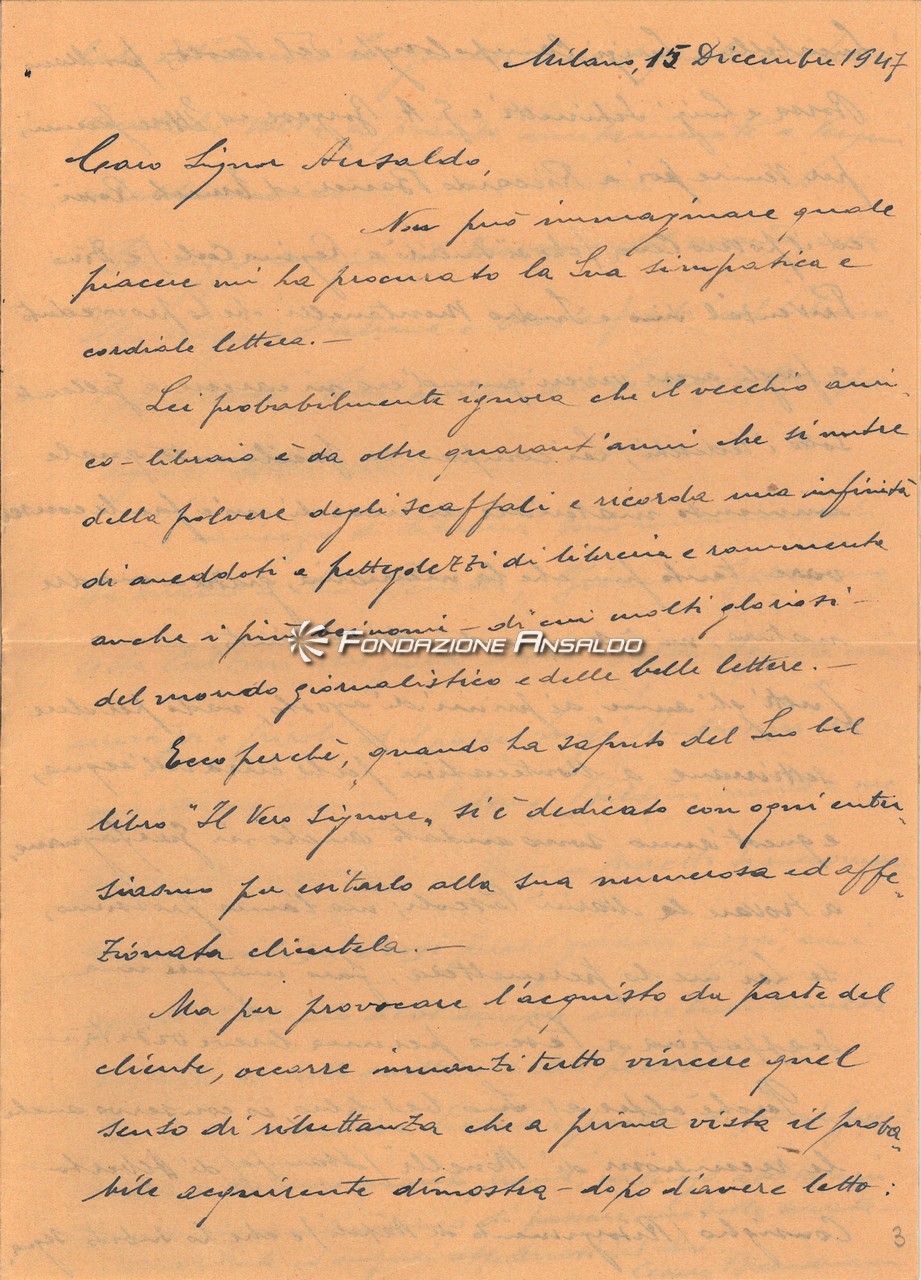 Milano, 15 Dicembre 1947
Caro Signor Ansaldo,
Non può immaginare quale
piacere mi ha procurato la Sua simpatica e
cordiale lettera.—
Lei probabilmente ignora che il vecchio ami-
co-libraio è da oltre quarant'anni che si nutre
della polvere degli scaffali e ricorda una infinità
di aneddoti e pettegolezzi di libreria e rammenta
anche i più bei nomi — di cui molti gloriosi —
FONDAZIONE ANSALDO
del mondo giornalistico e delle belle lettere.—
Ecco perchè, quando ha saputo del Suo bel
libro "Il Vero Signore„ si è dedicato con ogni entu-
siasmo per esitarlo alla sua numerosa ed affe-
zionata clientela.—
Ma per provocare l'acquisto da parte del
cliente, occorre innanzi tutto vincere quel
senso di riluttanza che a prima vista il proba-
bile acquirente dimostra — dopo d'avere letto:
3